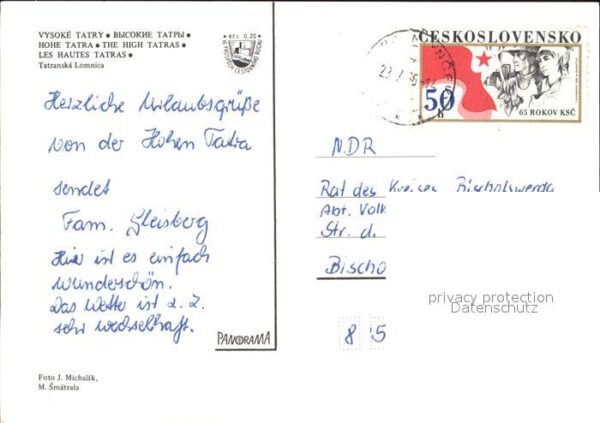 VYSOKÉ TATRY • ВЫСОКИЕ ТАТРЫ •
HOHE TATRA • THE HIGH TATRAS •
LES HAUTES TATRAS •
Tatranská Lomnica
Kčs 0,20
Herzliche Urlaubsgrüße
von der Hohen Tatra
sendet
Fam. Gleisberg
Hier ist es einfach
wunderschön.
Das Wetter ist z. Z.
sehr wechselhaft.
PANORAMA
Foto J. Michalík,
M. Šmátrala
ČESKOSLOVENSKO
50
h
65 ROKOV KSČ
NDR
Rat des Kreises Bischofswerda
Abt. Volk
Str. d.
Bischo
privacy protection
Datenschutz
8 5